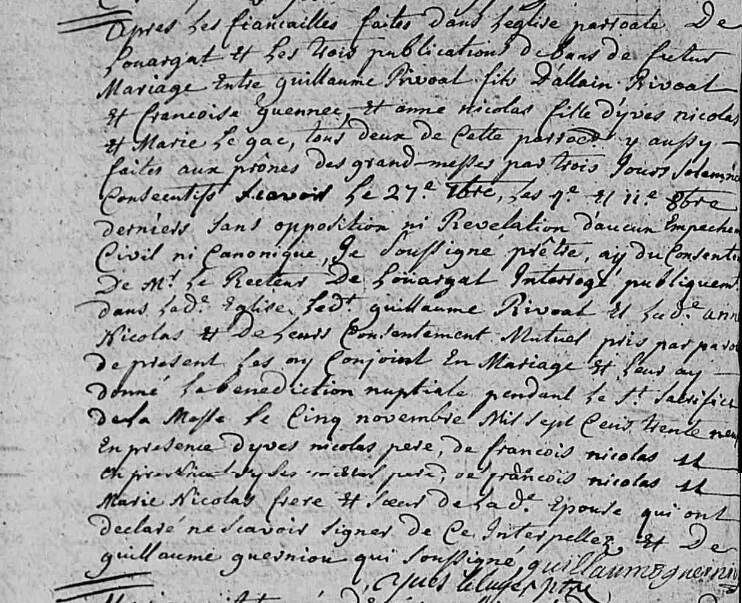 Apres Les fiancailles faites dans Leglise parroale De
Louargat Et Les trois publications de bans de futur
Mariage Entre guillaume Rivoal fils Dallain Rivoal
Et francoise guennec, Et anne nicolas fille d'yves nicolas
Et Marie Le gac, tous deux de Cette parroce y aussy
faites aux prônes des grand-messes par trois Jours Solemne
Consecutifs Scavoir Le 27e. 7bre, Les 4e. Et 11e 8bre
derniers Sans opposition ni Revelation d'aucun Empechem
Civil ni Canonique, Je Soussigné prêtre, ay du Consente
De Mr. Le Recteur De Louargat Interrogé publiquem
dans Lade. Eglise Ledt. guillaume Rivoal Et Lade. ann
Nicolas Et De Leurs Consentement Mutuel pris par paro
de present Les ay Conjoint En Mariage Et Leur ay
donné La benediction nuptiale pendant Le St. Sacrifice
de La Messe Le Cinq novembre Mil Sept Cens trente neuf
En presence dyves nicolas pere, de francois nicolas Et
pere, de francois nicolas Et
Marie Nicolas frere Et Sœur de La de. Epouse qui ont
declaré ne Scavoir Signer de Ce Interpellez Et De
guillaume guerniou qui Soussigne, guillaume guerniou
Yves ptre